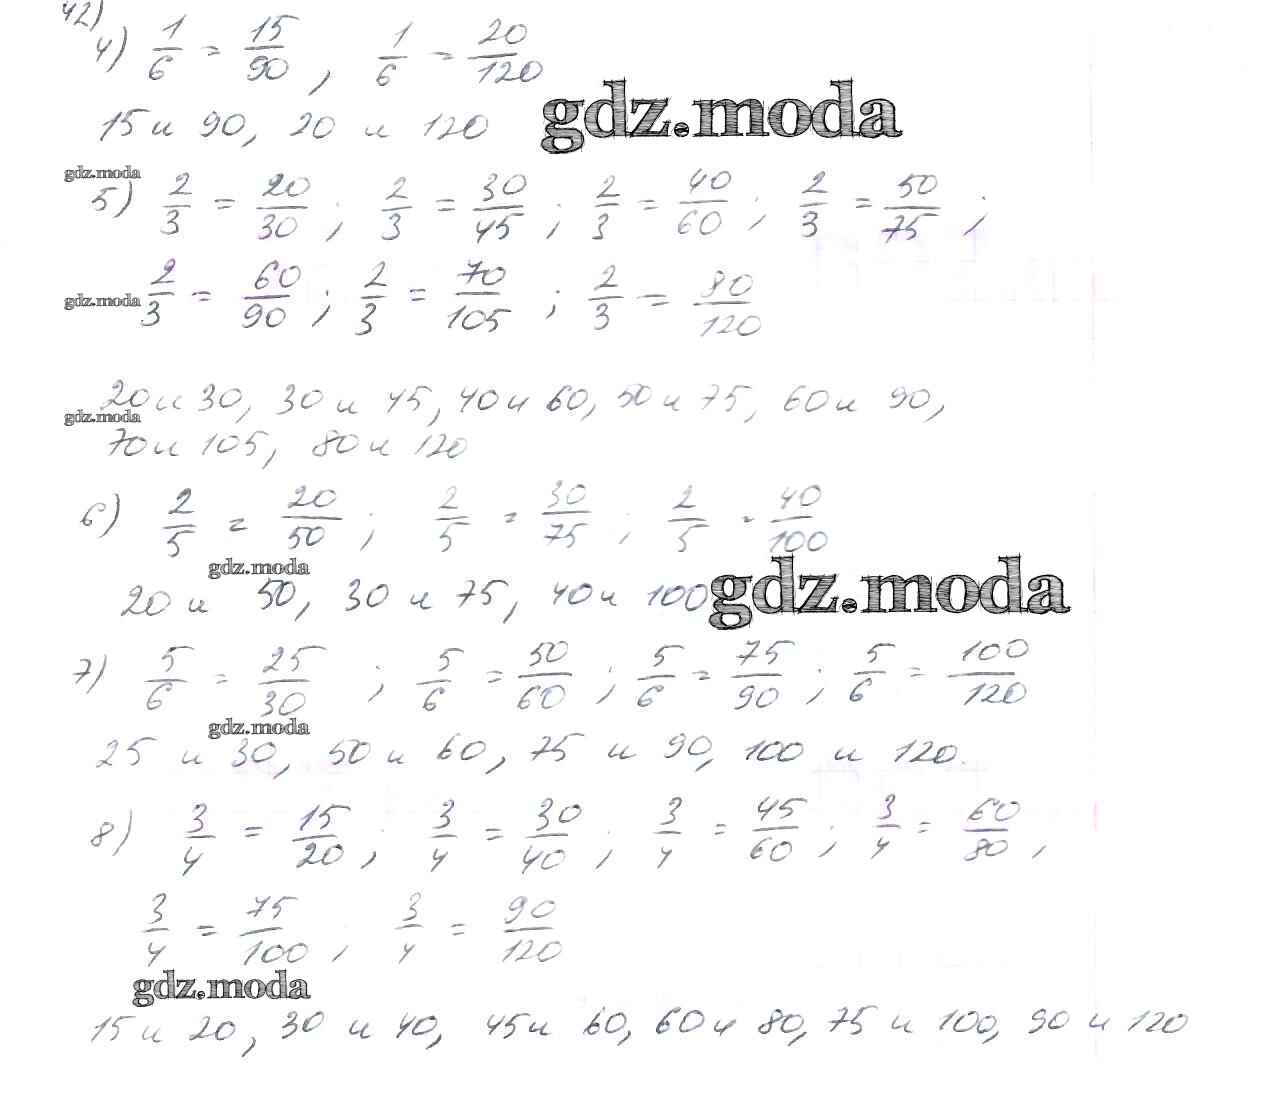 42)
4) 1/6 = 15/90, 1/6 = 20/120
15 и 90, 20 и 120
gdz.moda
gdz.moda
5) 2/3 = 20/30; 2/3 = 30/45; 2/3 = 40/60; 2/3 = 50/75;
gdz.moda
2/3 = 60/90; 2/3 = 70/105; 2/3 = 80/120
20 и 30, 30 и 45, 40 и 60, 50 и 75, 60 и 90,
gdz.moda
70 и 105, 80 и 120
6) 2/5 = 20/50; 2/5 = 30/75; 2/5 = 40/100
gdz.moda
20 и 50, 30 и 75, 40 и 100
gdz.moda
7) 5/6 = 25/30; 5/6 = 50/60; 5/6 = 75/90; 5/6 = 100/120
gdz.moda
25 и 30, 50 и 60, 75 и 90, 100 и 120.
8) 3/4 = 15/20; 3/4 = 30/40; 3/4 = 45/60; 3/4 = 60/80,
3/4 = 75/100; 3/4 = 90/120
gdz.moda
15 и 20, 30 и 40, 45 и 60, 60 и 80, 75 и 100, 90 и 120